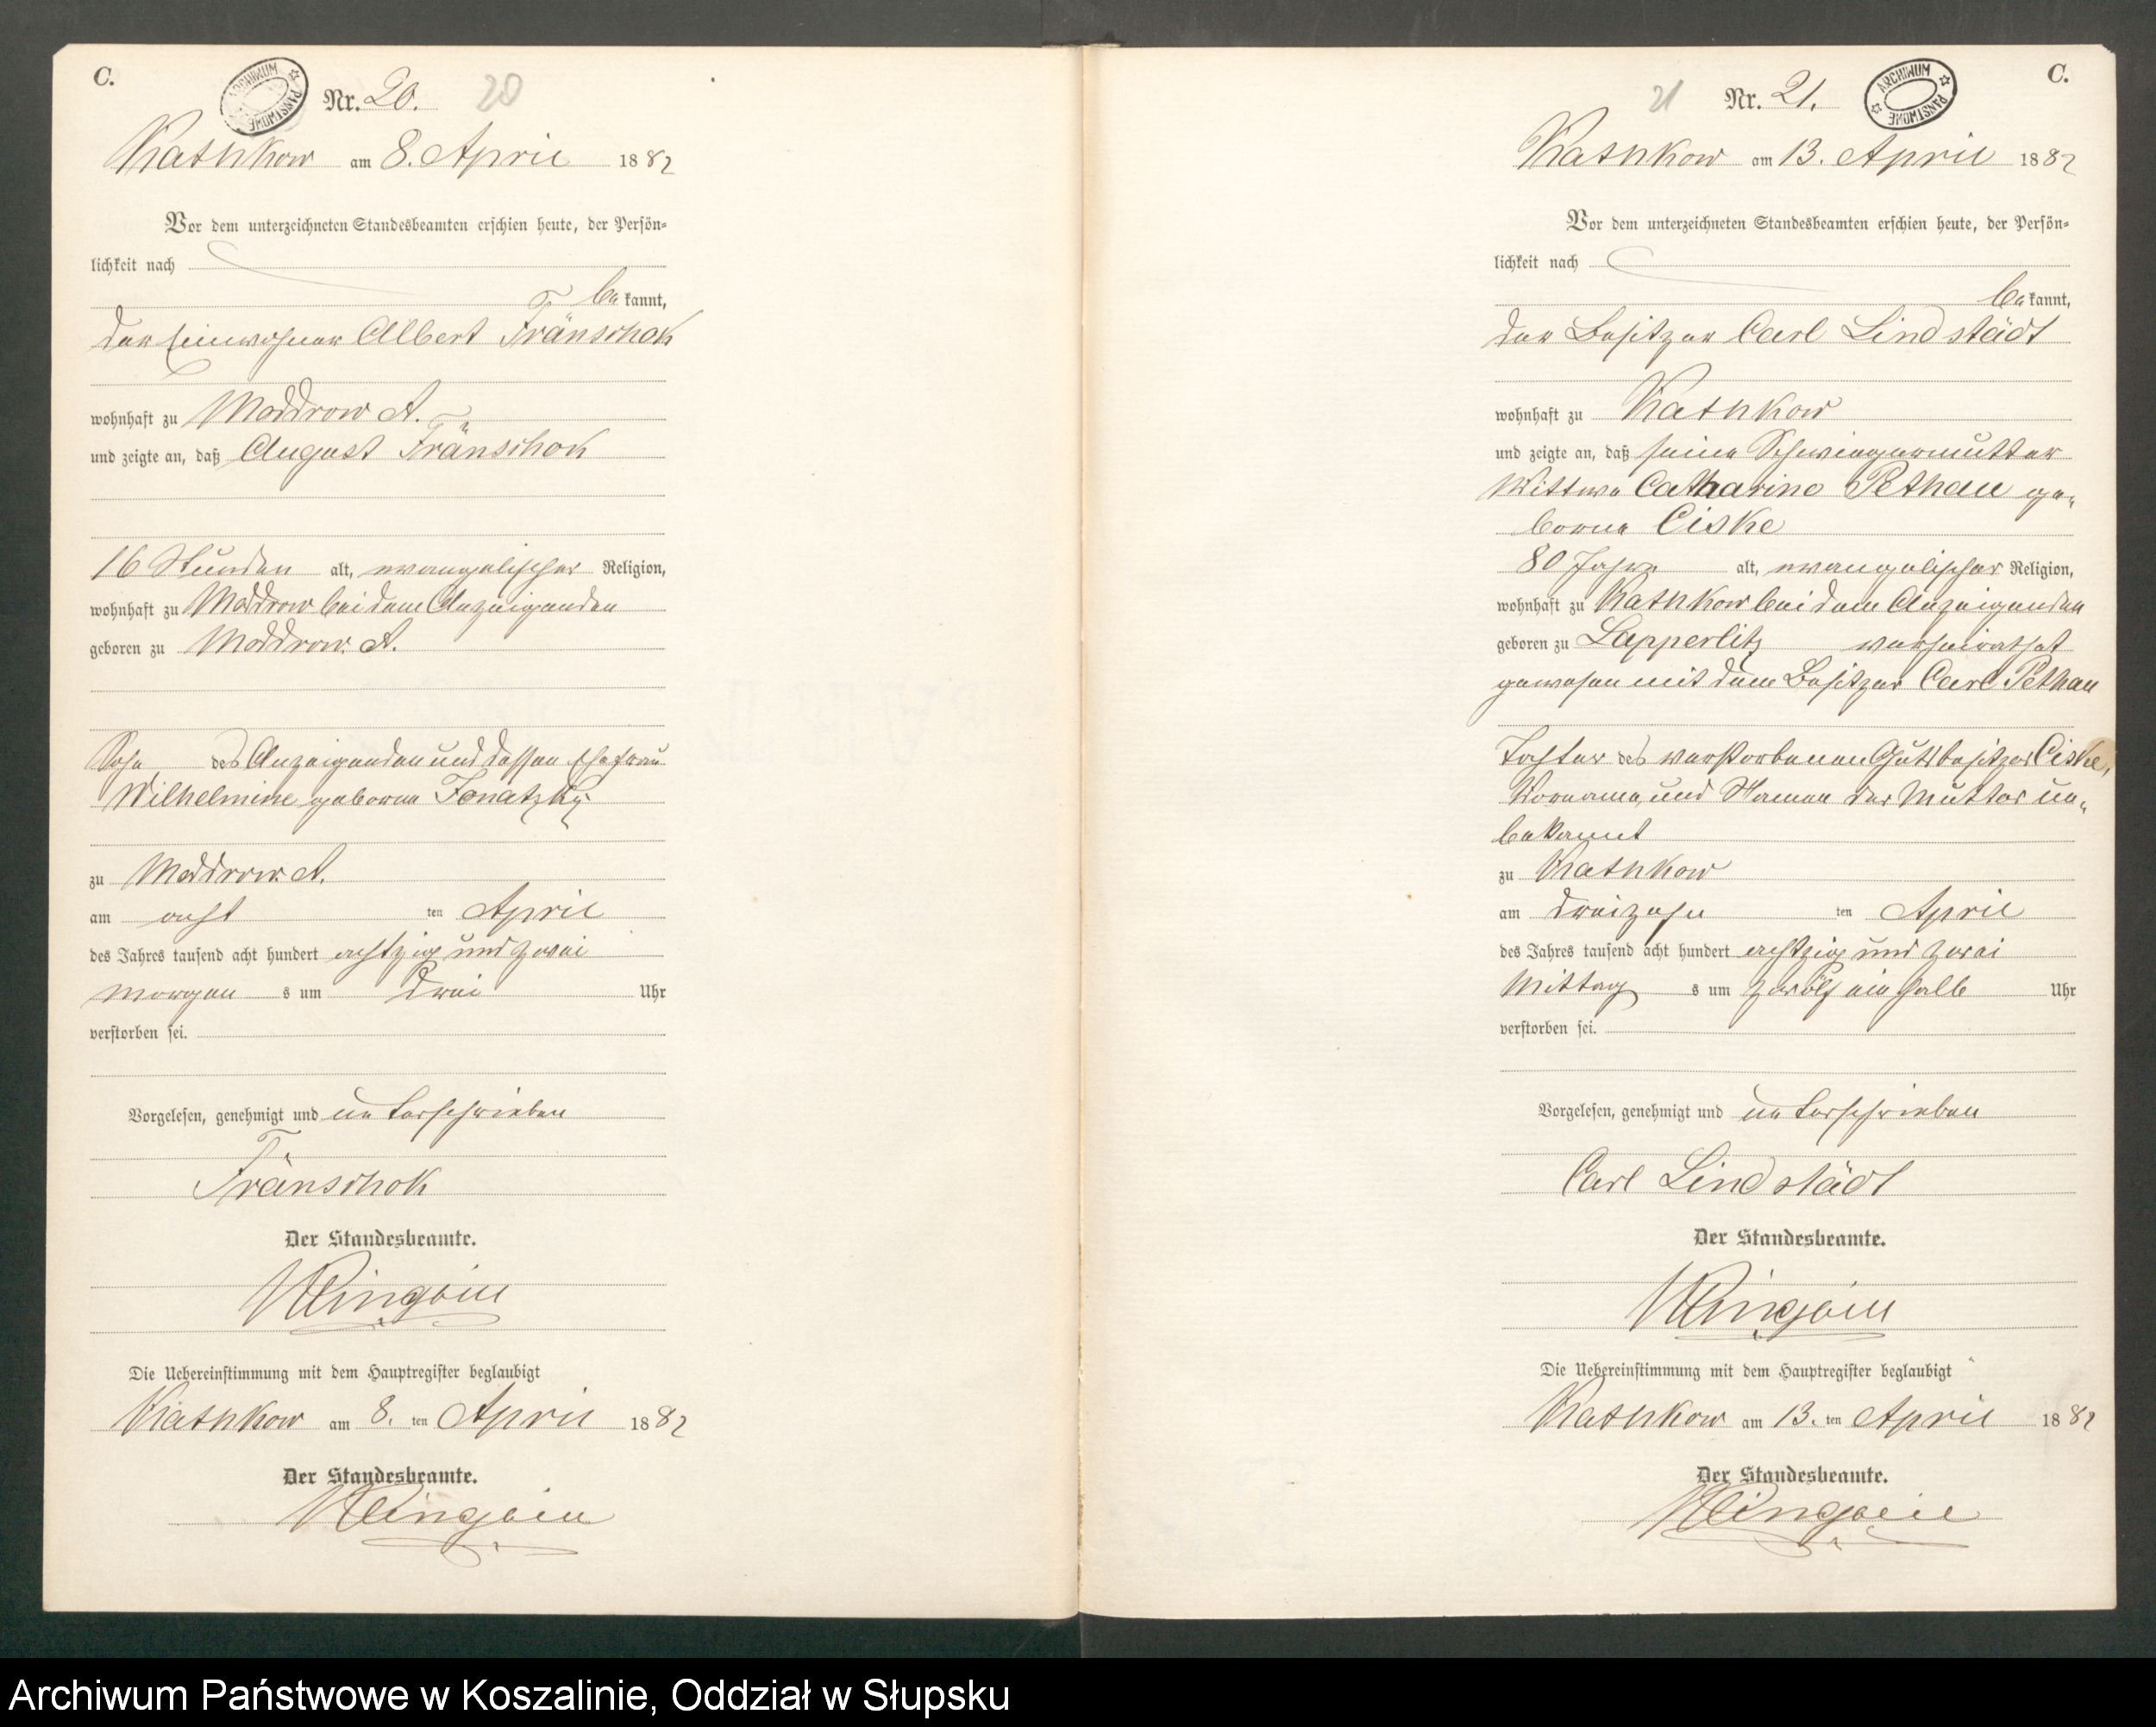 C.
ARCHIWUM PAŃSTWOWE
Nr. 20. 20
Kathkow am 8. April 1882
Vor dem unterzeichneten Standesbeamten erschien heute, der Persön-
lichkeit nach
bekannt,
der Einwohner Albert Fränschok
wohnhaft zu Moddrow A.
und zeigte an, daß August Fränschok
16 Stunden alt, evangelischer Religion,
wohnhaft zu Moddrow bei dem Anzeigenden
geboren zu Moddrow A.
Sohn des Anzeigenden und dessen Ehefrau
Wilhelmine geborne Jonatzky
zu Moddrow A.
am acht ten April
des Jahres tausend acht hundert achtzig und zwei
Morgen s um drei Uhr
verstorben sei.
Vorgelesen, genehmigt und unterschrieben
Fränschok
Der Standesbeamte.
Die Uebereinstimmung mit dem Hauptregister beglaubigt
Kathkow am 8. ten April 1882
Der Standesbeamte.
C.
21 Nr. 21.
ARCHIWUM PAŃSTWOWE
Kathkow am 13. April 1882
Vor dem unterzeichneten Standesbeamten erschien heute, der Persön-
lichkeit nach
bekannt,
der Besitzer Carl Lindstädt
wohnhaft zu Kathkow
und zeigte an, daß seine Schwiegermutter
Wittwe Catharine Pethau ge-
borne Ciske
80 Jahre alt, evangelischer Religion,
wohnhaft zu Kathkow bei dem Anzeigenden
geboren zu Lapperlitz verheirathet
gewesen mit dem Besitzer Carl Pethau
Tochter des verstorbenen Gutsbesitzer Ciske,
Vorname und Namen der Mutter un-
bekannt
zu Kathkow
am dreizehn ten April
des Jahres tausend acht hundert achtzig und zwei
Mittag s um zwölf ein halb Uhr
verstorben sei.
Vorgelesen, genehmigt und unterschrieben
Carl Lindstädt
Der Standesbeamte.
Die Uebereinstimmung mit dem Hauptregister beglaubigt
Kathkow am 13. ten April 1882
Der Standesbeamte.
Archiwum Państwowe w Koszalinie, Oddział w Słupsku